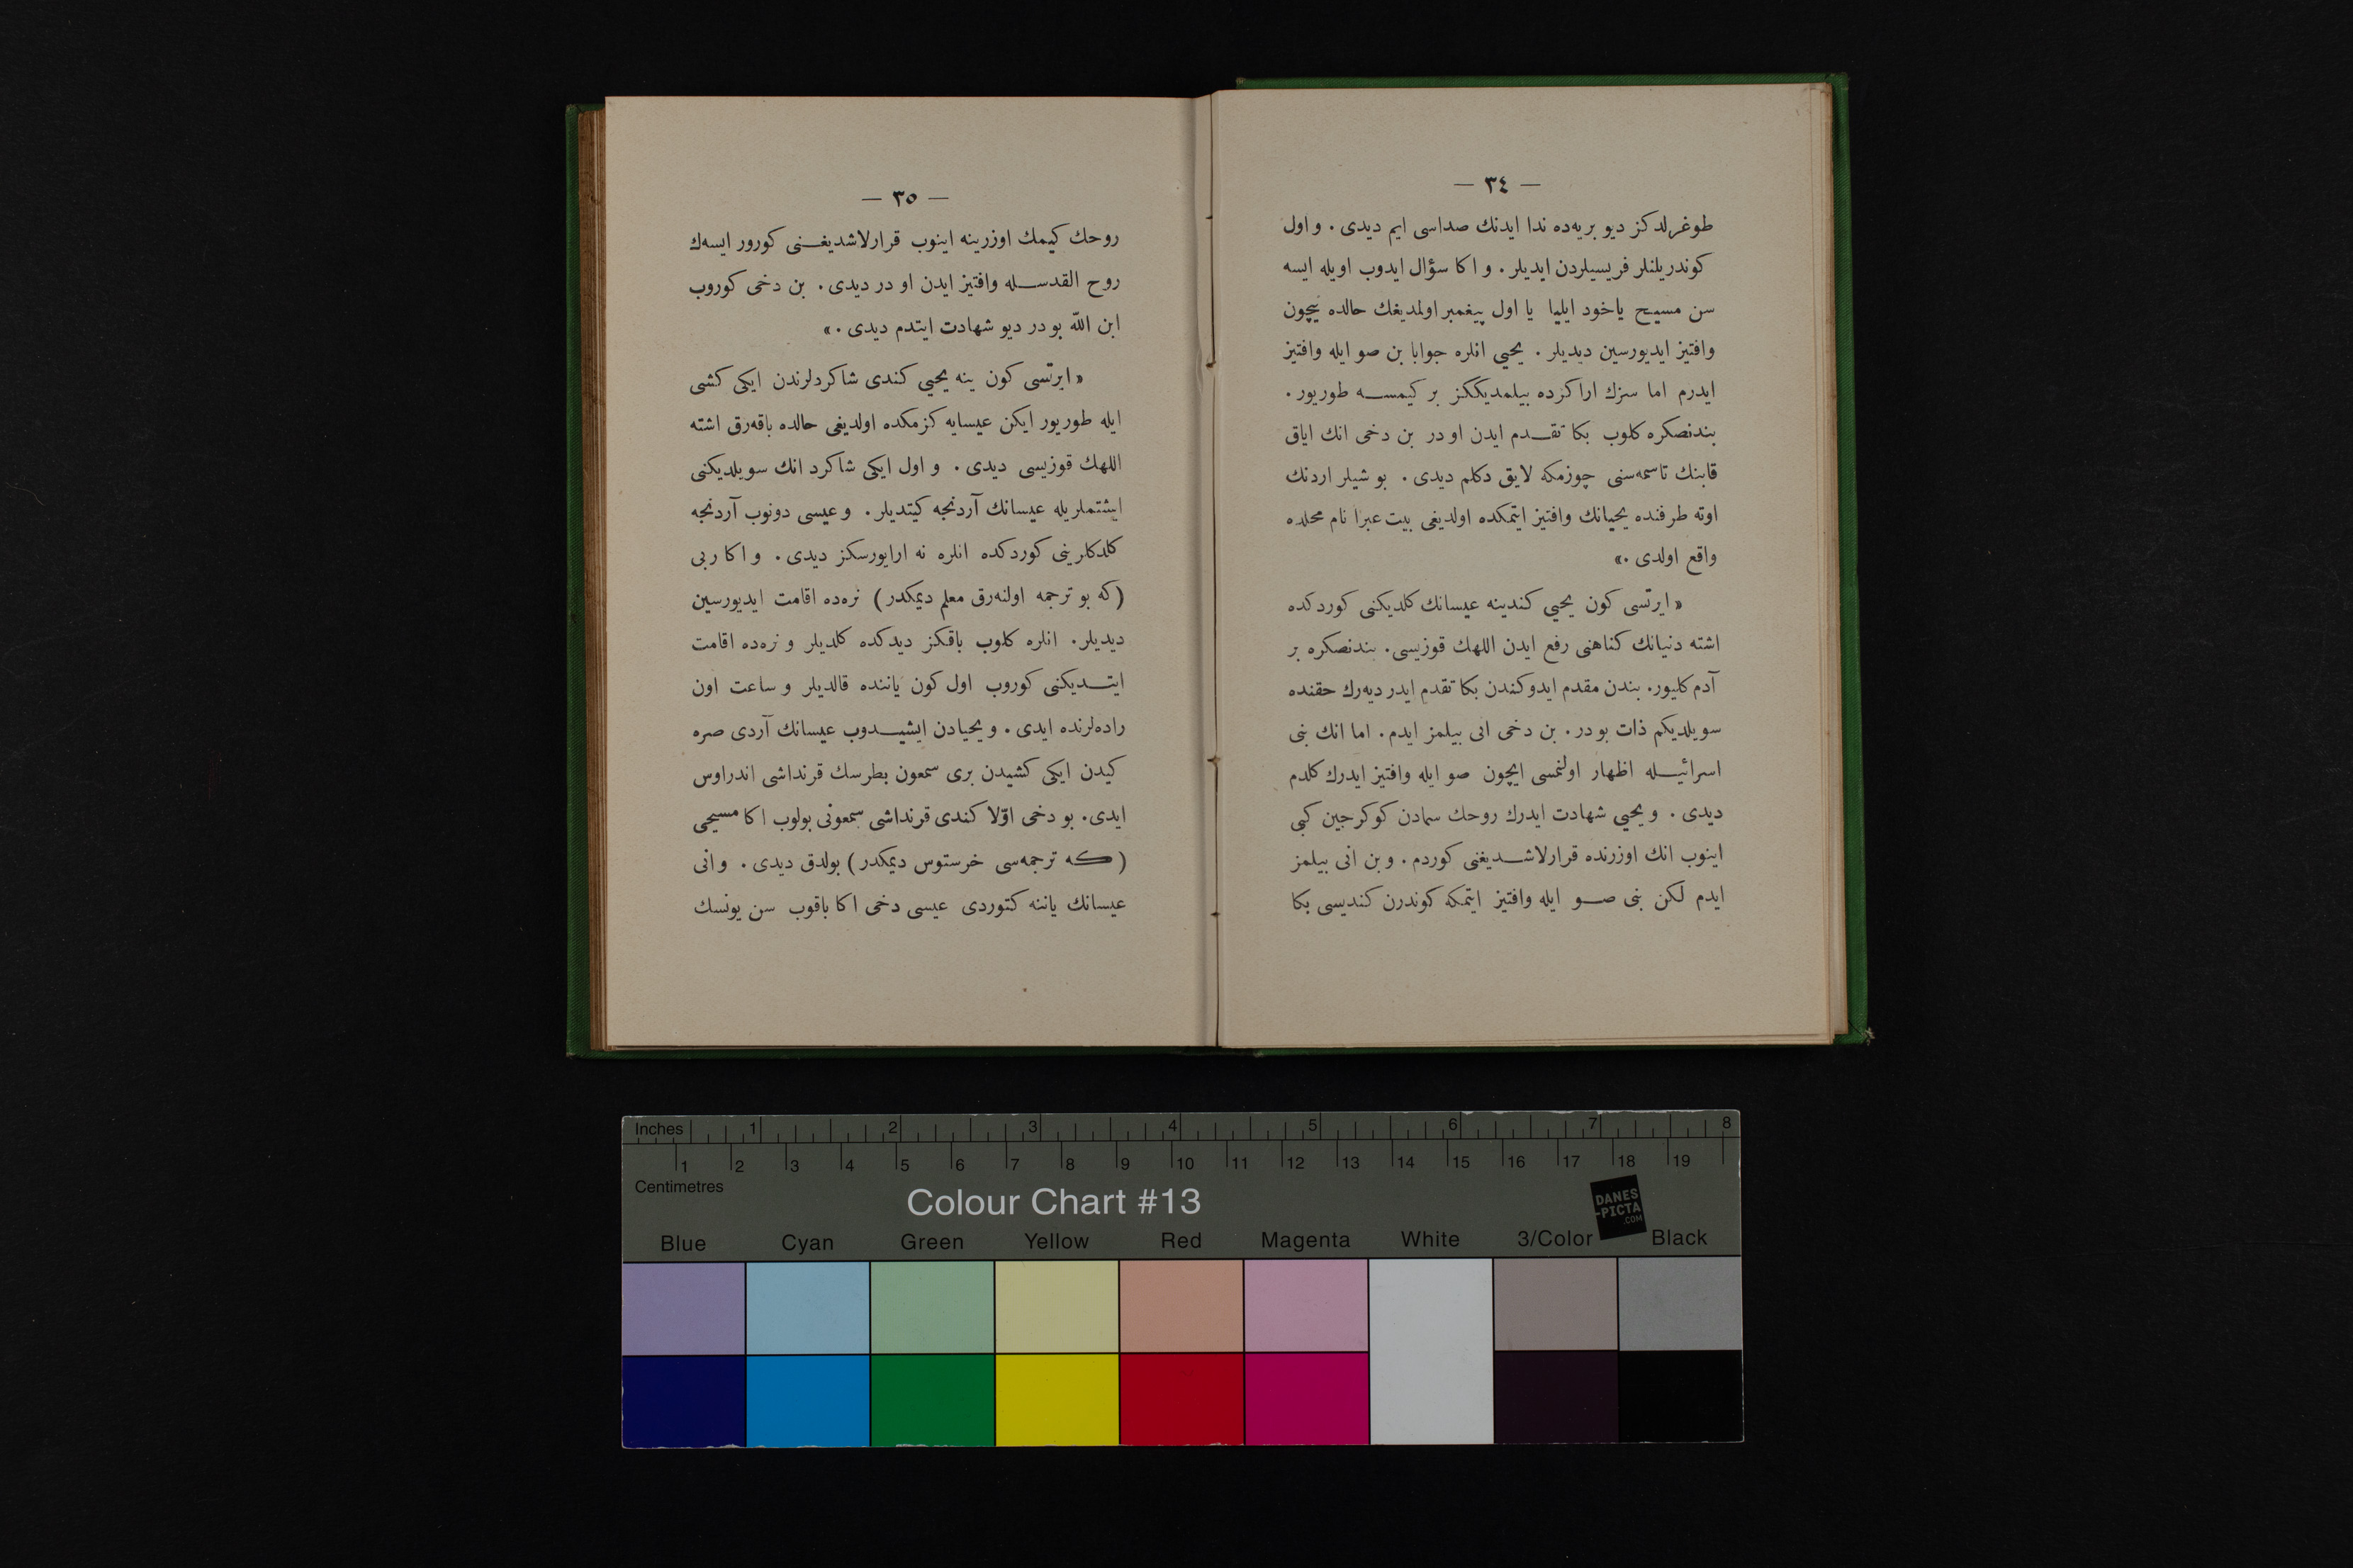 — ٣٤ —
طوغرلدكز ديو بريه‌ده ندا ايدنك صداسى ايم ديدى . و اول
كوندريلنلر فريسيلردن ايديلر . و اكا سؤال ايدوب اويله ايسه
سن مسيح ياخود ايليا يا اول پيغمبر اولمديغك حالده نيچون
وافتيز ايديورسين ديديلر . يحيى انلره جوابا بن صو ايله وافتيز
ايدرم اما سزك اراكزده بيلمديككز بر كيمسه طوريور .
بندنصكره كلوب بكا تقدم ايدن او در بن دخى انك اياق
قابنك تاسمه‌سنى چوزمكه لايق دكلم ديدى . بو شيلر اردنك
اوته طرفنده يحيانك وافتيز ايتمكده اولديغى بيت عبرا نام محلده
واقع اولدى .»
« ايرتسى كون يحيى كندينه عيسانك كلديكنى كوردكده
اشته دنيانك كناهنى رفع ايدن اللهك قوزيسى . بندنصكره بر
آدم كليور . بندن مقدم ايدوكندن بكا تقدم ايدر ديه‌رك حقنده
سويلديكم ذات بو در . بن دخى انى بيلمز ايدم . اما انك بنى
اسرائيله اظهار اولنمسى ايچون صو ايله وافتيز ايدرك كلدم
ديدى . و يحيى شهادت ايدرك روحك سمادن كوكرجين كبى
اينوب انك اوزرنده قرارلاشديغنى كوردم . و بن انى بيلمز
ايدم لكن بنى صو ايله وافتيز ايتمكه كوندرن كنديسى بكا
— ٣٥ —
روحك كيمك اوزرينه اينوب قرارلاشديغنى كورور ايسه‌ك
روح القدسله وافتيز ايدن او در ديدى . بن دخى كوروب
ابن اللّه بو در ديو شهادت ايتدم ديدى .»
« ايرتسى كون ينه يحيى كندى شاكردلرندن ايكى كشى
ايله طوريور ايكن عيسايه كزمكده اولديغى حالده باقه‌رق اشته
اللهك قوزيسى ديدى . و اول ايكى شاكرد انك سويلديكنى
ايشتملريله عيسانك آردنجه كيتديلر . و عيسى دونوب آردنجه
كلدكلرينى كوردكده انلره نه ارايورسكز ديدى . و اكا ربى
(كه بو ترجمه اولنه‌رق معلم ديمكدر) نره‌ده اقامت ايديورسين
ديديلر . انلره كلوب باقكز ديدكده كلديلر و نره‌ده اقامت
ايتديكنى كوروب اول كون ياننده قالديلر و ساعت اون
راده‌لرنده ايدى . و يحيادن ايشيدوب عيسانك آردى صره
كيدن ايكى كشيدن برى سمعون بطرسك قرنداشى اندراوس
ايدى . بو دخى اوّلا كندى قرنداشى سمعونى بولوب اكا مسيحى
(كه ترجمه‌سى خرستوس ديمكدر) بولدق ديدى . و انى
عيسانك ياننه كتوردى عيسى دخى اكا باقوب سن يونسك
Inches 1 2 3 4 5 6 7 8
1 2 3 4 5 6 7 8 9 10 11 12 13 14 15 16 17 18 19
Centimetres
Colour Chart #13
DANES
-PICTA
.COM
Blue Cyan Green Yellow Red Magenta White 3/Color Black